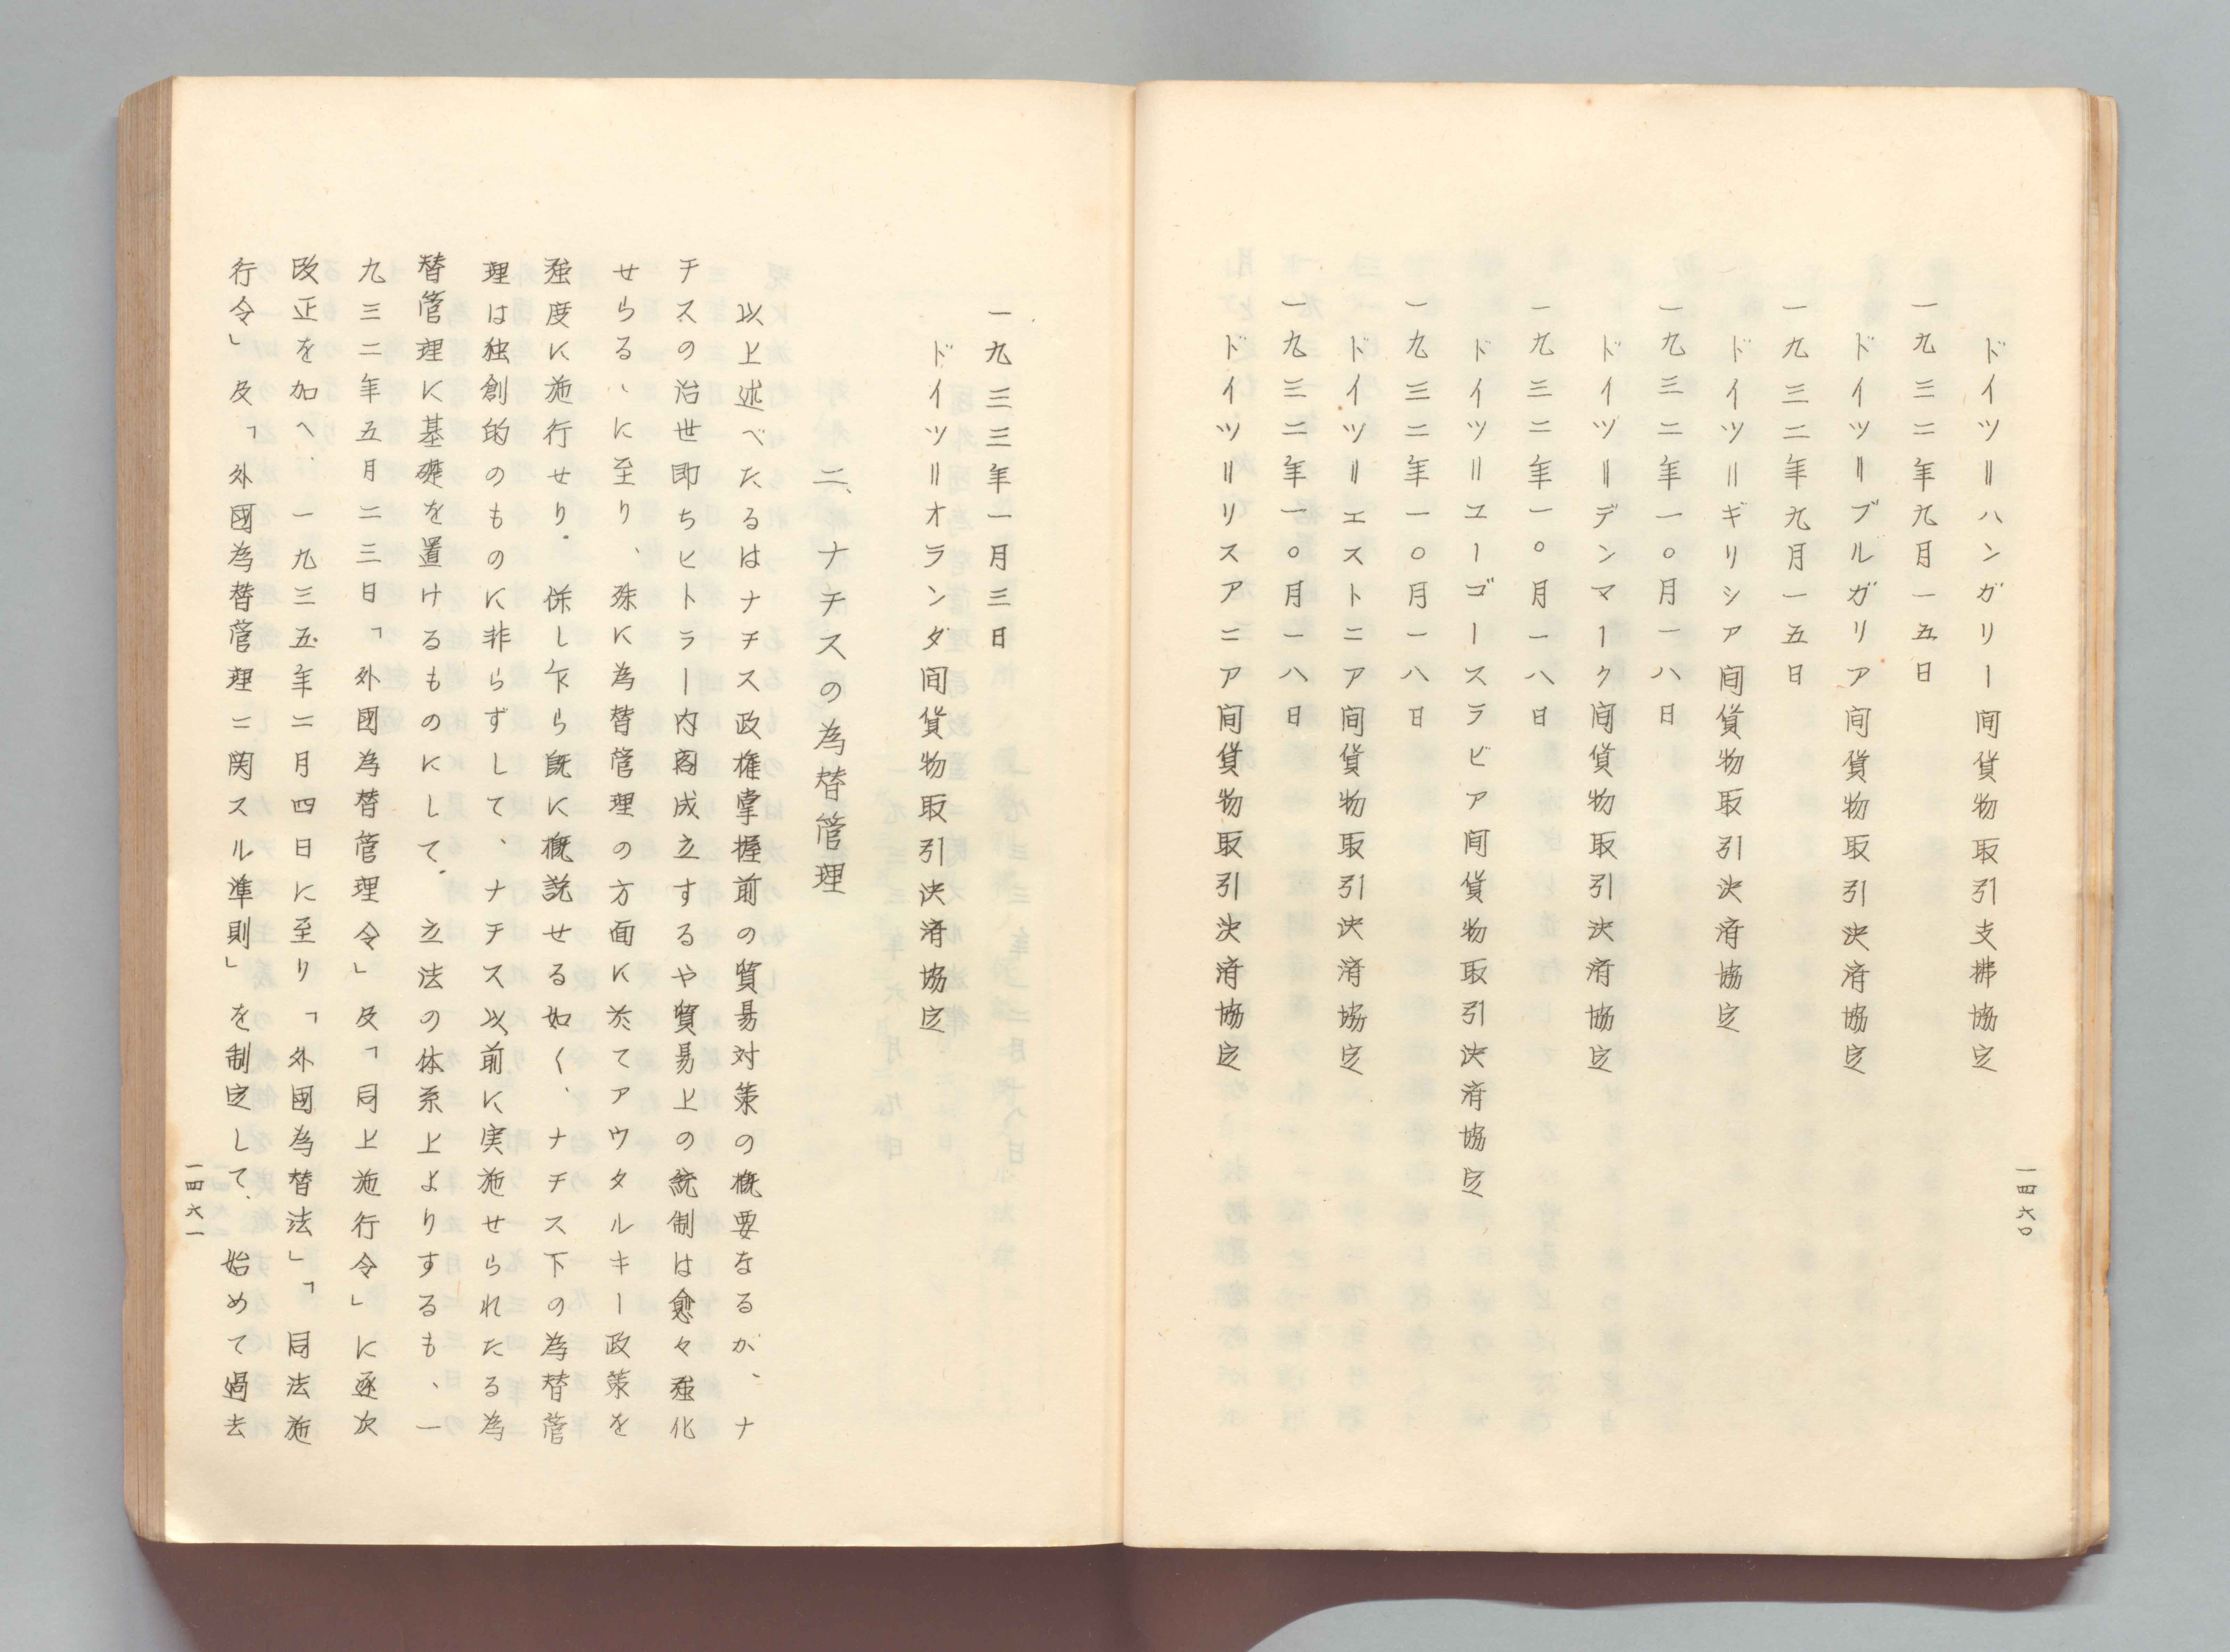 ドイツ＝ハンガリー间貨物取引支拂協定
一九三二年九月一五日
ドイツ＝ブルガリア间貨物取引決済協定
一九三二年九月一五日
ドイツ＝ギリシア间貨物取引決済協定
一九三二年一〇月一八日
ドイツ＝デンマーク间貨物取引決済協定
一九三二年一〇月一八日
ドイツ＝ユーゴースラビア间貨物取引決済協定
一九三二年一〇月一八日
ドイツ＝エストニア间貨物取引決済協定
一九三二年一〇月一八日
ドイツ＝リスアニア间貨物取引決済協定
一四六〇
一九三三年一月三日
ドイツ＝オランダ间貨物取引決済協定
二、ナチスの為替管理
以上述べたるはナチス政権掌握前の貿易対策の概要なるが、ナ
チスの治世即ちヒトラー内閣成立するや貿易上の統制は愈々強化
せらるゝに至り、殊に為替管理の方面に於てアウタルキー政策を
強度に施行せり。併し乍ら既に概説せる如く、ナチス下の為替管
理は独創的のものに非らずして、ナチス以前に実施せられたる為
替管理に基礎を置けるものにして、立法の体系上よりするも、一
九三二年五月二三日「外國為替管理令」及「同上施行令」に逐次
改正を加へ、一九三五年二月四日に至り「外國為替法」「同法施
行令」及「外國為替管理ニ関スル準則」を制定して、始めて過去
一四六一